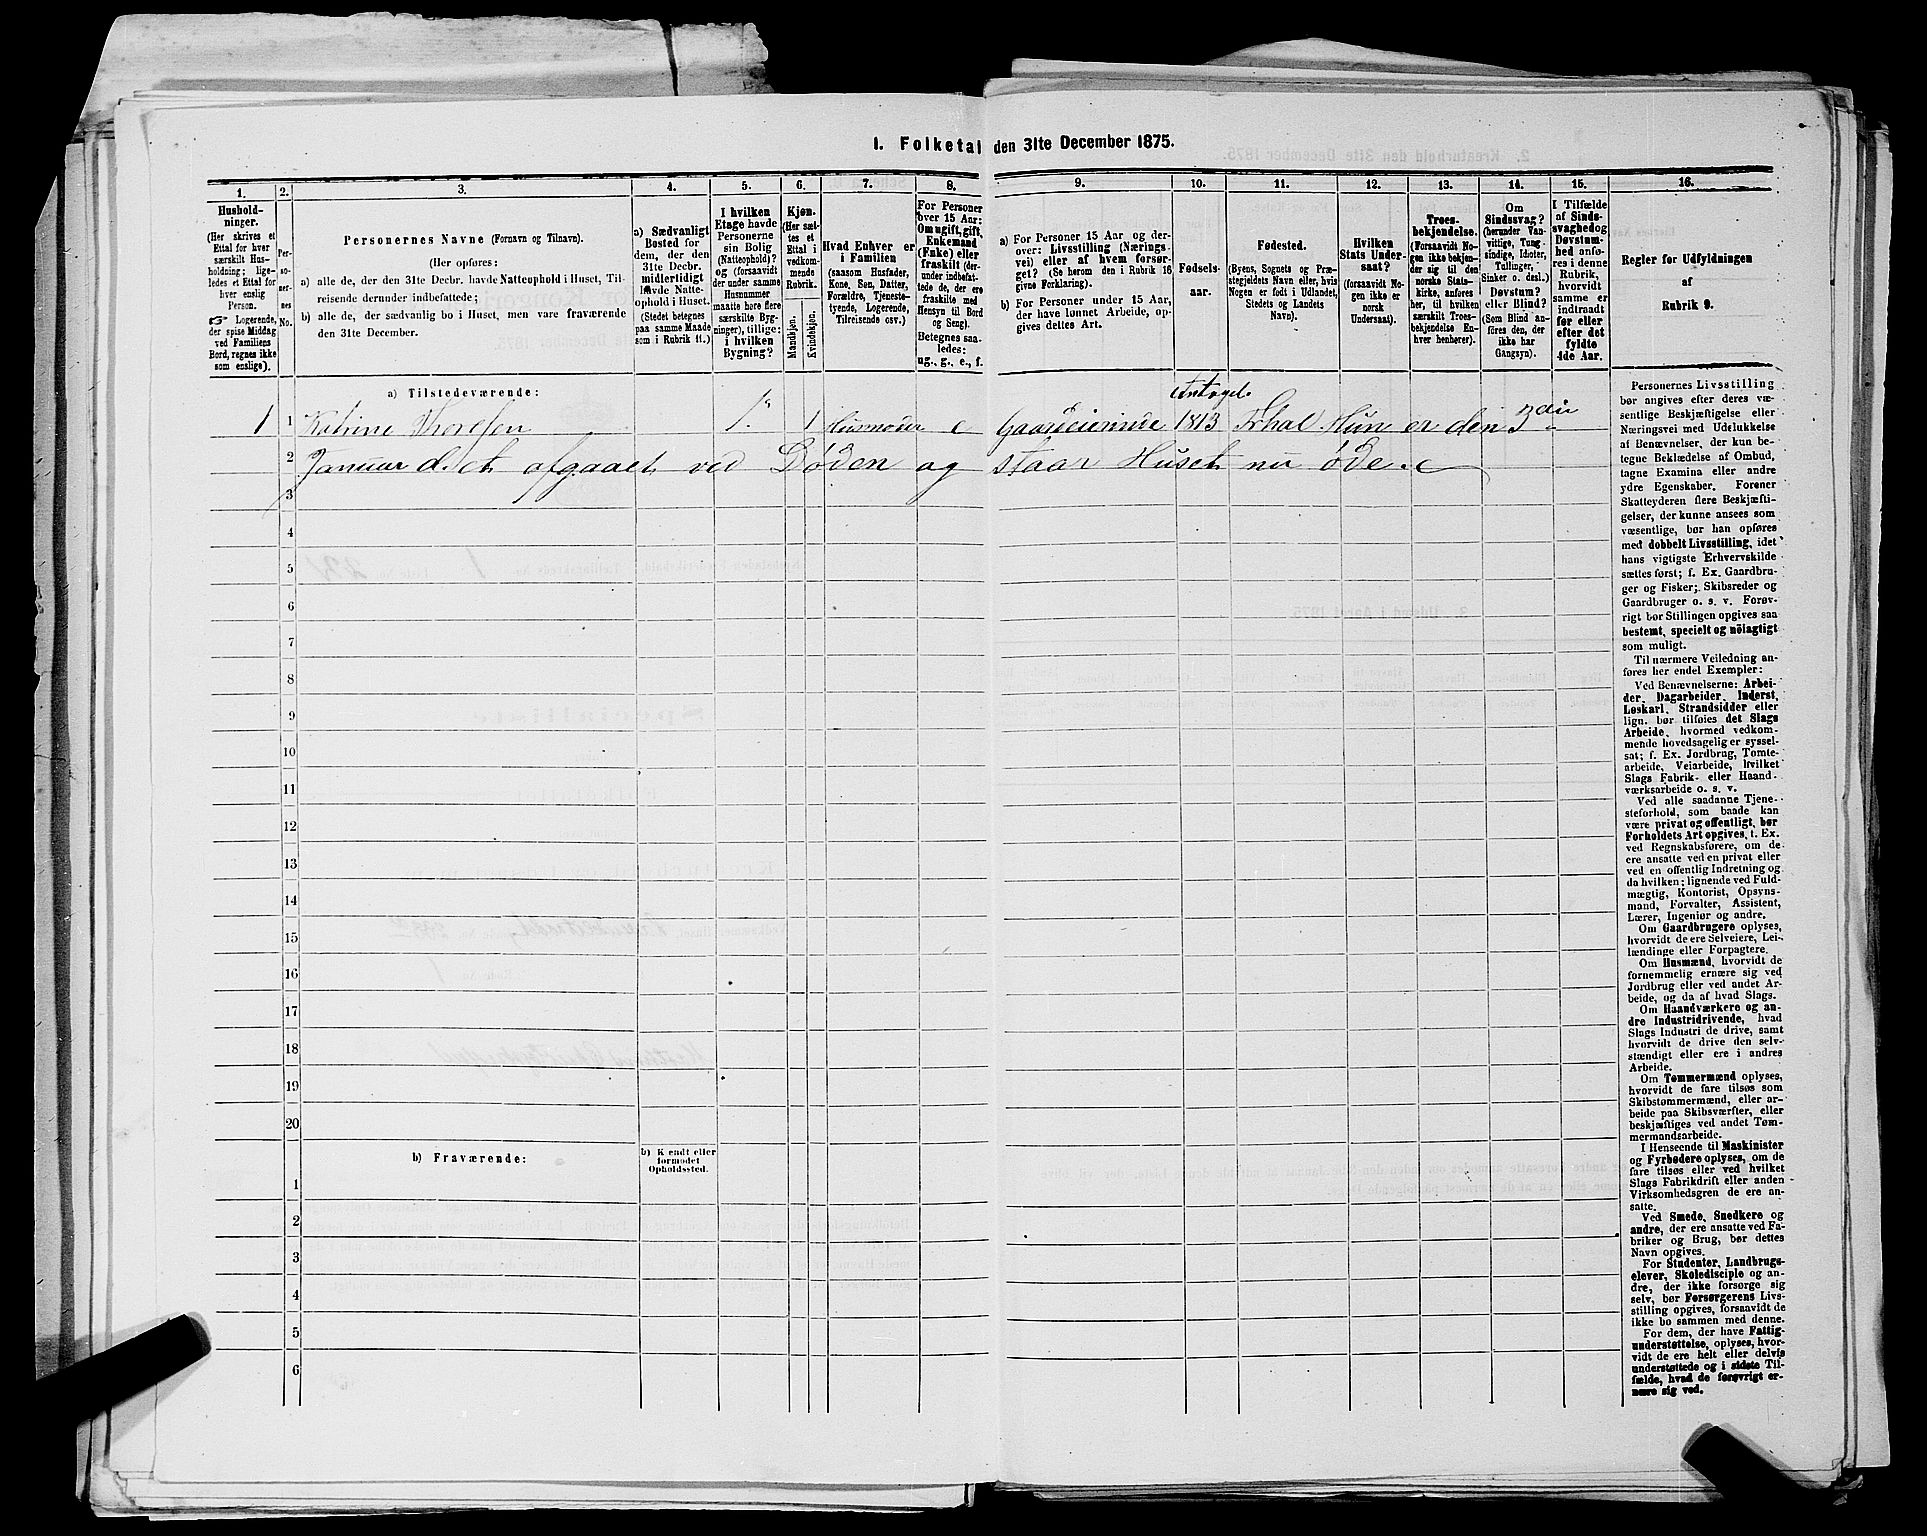 1. Folketal den 31te December 1875.
1.
2.
3.
4.
5.
6.
7.
8.
9.
10.
11.
12.
13.
14.
15.
16.
Hushold-
ninger.
(Her skrives et
Ettal for hver
særskilt Hus-
holdning; lige-
ledes et Ettal for
hver enslig
Person.
☞ Logerende,
der spise Middag
ved Familiens
Bord, regnes ikke
som enslige).
Per-
so-
ner-
nes
No.
Personernes Navne (Fornavn og Tilnavn).
(Her opføres:
a) alle de, der den 31te Decbr. havde Natteophold i Huset, Til-
reisende derunder indbefattede;
b) alle de, der sædvanlig bo i Huset, men vare fraværende
den 31te December.
a) Sædvanligt
Bosted for
dem, der den
31te Decbr.
midlertidigt
havde Natte-
ophold i Huset.
(Stedet betegnes
paa samme Maade
som i Rubrik 11.)
I hvilken
Etage havde
Personerne
sin Bolig
(Natteophold)?
og (forsaavidt
der under samme
Husnummer
maatte høre flere
særskilte Byg-
ninger), tillige:
i hvilken
Bygning?
Kjøn.
(Her sæt-
tes et
Ettal i
vedkom-
mende
Rubrik.
Mandkjøn.
Kvindekjøn.
Hvad Enhver er
i Familien
(saasom Husfader,
Kone, Søn, Datter,
Forældre, Tjeneste-
tyende, Logerende,
Tilreisende osv.)
For Personer
over 15 Aar:
Om ugift, gift,
Enkemand
(Enke) eller
fraskilt (der-
under indbefat-
tede de, der ere
fraskilte med
Hensyn til Bord
og Seng).
Betegnes saa-
ledes:
ug., g., e., f.
a) For Personer 15 Aar og der-
over: Livsstilling (Nærings-
vei) eller af hvem forsør-
get? (Se herom den i Rubrik 16
givne Forklaring).
b) For Personer under 15 Aar,
der have lønnet Arbeide, op-
gives dettes Art.
Fødsels-
aar.
Fødested.
(Byens, Sognets og Præ-
stegjeldets Navn eller, hvis
Nogen er født i Udlandet,
Stedets og Landets
Navn).
Hvilken
Stats Under-
saat?
(forsaavidt No-
gen ikke er
norsk
Undersaat).
Troes-
bekjendelse.
(Forsaavidt No-
gen ikke bekjen-
der sig til den
norske Stats-
kirke, anføres
her, til hvilken
særskilt Troes-
bekjendelse En-
hver henhører).
Om
Sindssvag?
(herunder Van-
vittige, Tung-
sindige, Idioter,
Tullinger,
Sinker o. desl.)
Døvstum?
eller Blind?
(Som Blind an-
føres den, der
ikke har
Gangsyn).
I Tilfælde
af Sinds-
svaghed og
Døvstum-
hed anfø-
res i denne
Rubrik,
hvorvidt
samme er
indtraadt
før eller
efter det
fyldte
4de Aar.
Regler for Udfyldningen
af
Rubrik 9.
a) Tilstedeværende:
Antagel.
1 1 Katrine Thoresen 1. 1 Husmoder e Gaardeierinde 1813 Frhal Hun er den 3die
2 Januar d. et afgaaet ved Døden og staar Huset nu øde.
3
4
5
6
7
8
9
10
11
12
13
14
15
16
17
18
19
20
b) Fraværende:
b) Kjendt eller
formodet
Opholdssted.
1
2
3
4
5
6
Personernes Livsstilling
bør angives efter deres væ-
sentlige Beskjæftigelse eller
Næringsvei med Udelukkelse
af Benævnelser, der kun be-
tegne Beklædelse af Ombud,
tagne Examina eller andre
ydre Egenskaber. Forener
Skatteyderen flere Beskjæfti-
gelser, der kunne ansees som
væsentlige, bør han opføres
med dobbelt Livsstilling, idet
hans vigtigste Erhvervskilde
sættes først; f. Ex. Gaardbru-
ger og Fisker; Skibsreder og
Gaardbruger o. s. v. Forøv-
rigt bør Stillingen opgives saa
bestemt, specielt og nöiagtigt
som muligt.
Til nærmere Veiledning an-
føres her endel Exempler:
Ved Benævnelserne: Arbei-
der, Dagarbeider, Inderst,
Løskarl, Strandsidder eller
lign. bør tilføies det Slags
Arbeide, hvormed vedkom-
mende hovedsagelig er syssel-
sat; f. Ex. Jordbrug, Tomte-
arbeide, Veiarbeide, hvilket
Slags Fabrik- eller Haand-
værksarbeide o. s. v.
Ved alle saadanne Tjene-
steforhold, som baade kan
være privat og offentligt, bør
Forholdets Art opgives, t. Ex.
ved Regnskabsførere, om de
ere ansatte ved en privat eller
ved en offentlig Indretning og
da hvilken; lignende ved Fuld-
mægtig, Kontorist, Opsyns-
mand, Forvalter, Assistent,
Lærer, Ingeniør og andre.
Om Gaardbrugere oplyses,
hvorvidt de ere Selveiere, Lei-
lændinge eller Forpagtere.
Om Husmænd, hvorvidt de
fornemmelig ernære sig ved
Jordbrug eller ved andet Ar-
beide, og da af hvad Slags.
Om Haandværkere og an-
dre Industridrivende, hvad
Slags Industri de drive, samt
hvorvidt de drive den selv-
stændigt eller ere i andres
Arbeide.
Om Tømmermænd oplyses,
hvorvidt de fare tilsøs som
Skibstømmermænd, eller ar-
beide paa Skibsværfter, eller
beskjæftiges ved andet Tøm-
mermandsarbeide.
I Henseende til Maskinister
og Fyrbødere oplyses, om de
fare tilsøs eller ved hvilket
Slags Fabrikdrift eller anden
Virksomhedsgren de ere an-
satte.
Ved Smede, Snedkere og
andre, der ere ansatte ved Fa-
briker og Brug, bør dettes
Navn opgives.
For Studenter, Landbrugs-
elever, Skoledisciple og an-
dre, der ikke forsørge sig
selv, bør Forsørgerens Livs-
stilling opgives, forsaavidt de
ikke bo sammen med denne.
For dem, der have Fattig-
understøttelse, oplyses, hvor-
vidt de ere helt eller delvis
understøttede og i sidste Til-
fælde, hvad de forøvrigt er-
nære sig ved.